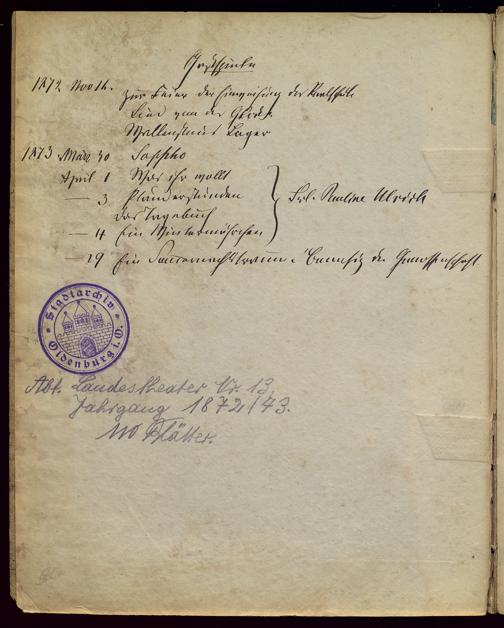 Gastspiele
1872 Nov 16. Zur Feier der Einweihung der Realschule
Lied von der Glocke
Wallensteins Lager
1873 März 30 Sappho
April 1 Was ihr wollt
— 3. Plauderstunden
Das Tagebuch
— 4 Ein Wintermärchen
Frl. Pauline Ulrich
— 29 Ein Sommernachtstraum. der Genossenschaft
Stadtarchiv
Oldenburg i. O.
Abt. Landestheater Nr. 13
Jahrgang 1872/73.
110 Blätter.